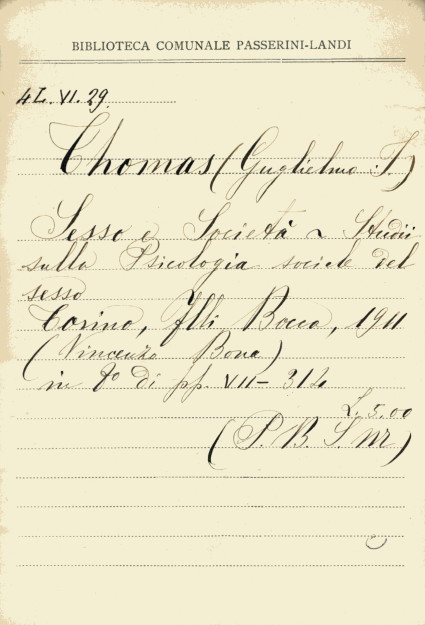 BIBLIOTECA COMUNALE PASSERINI-LANDI
4L.VI.29
Thomas (Guglielmo I.)
Sesso e Società ~ Studii
sulla Psicologia sociale del
sesso
Torino, Flli Bocca, 1911
(Vincenzo Bona)
in 8º di pp. VII-314
L. 5.00
(P. B. S. )